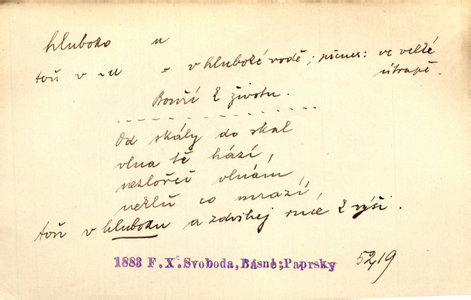 hluboko n
toň v -u = v hluboké vodě; přenes: ve velké
útrapě.
Bouře ž života.
Od skály do skal
vlna tě hází,
nezlořeč vlnám,
neklň co mrazí,
toň v hloubku a zdvihej ruce k výši.
1883 F.X.Svoboda,Básně;Paprsky 52,19